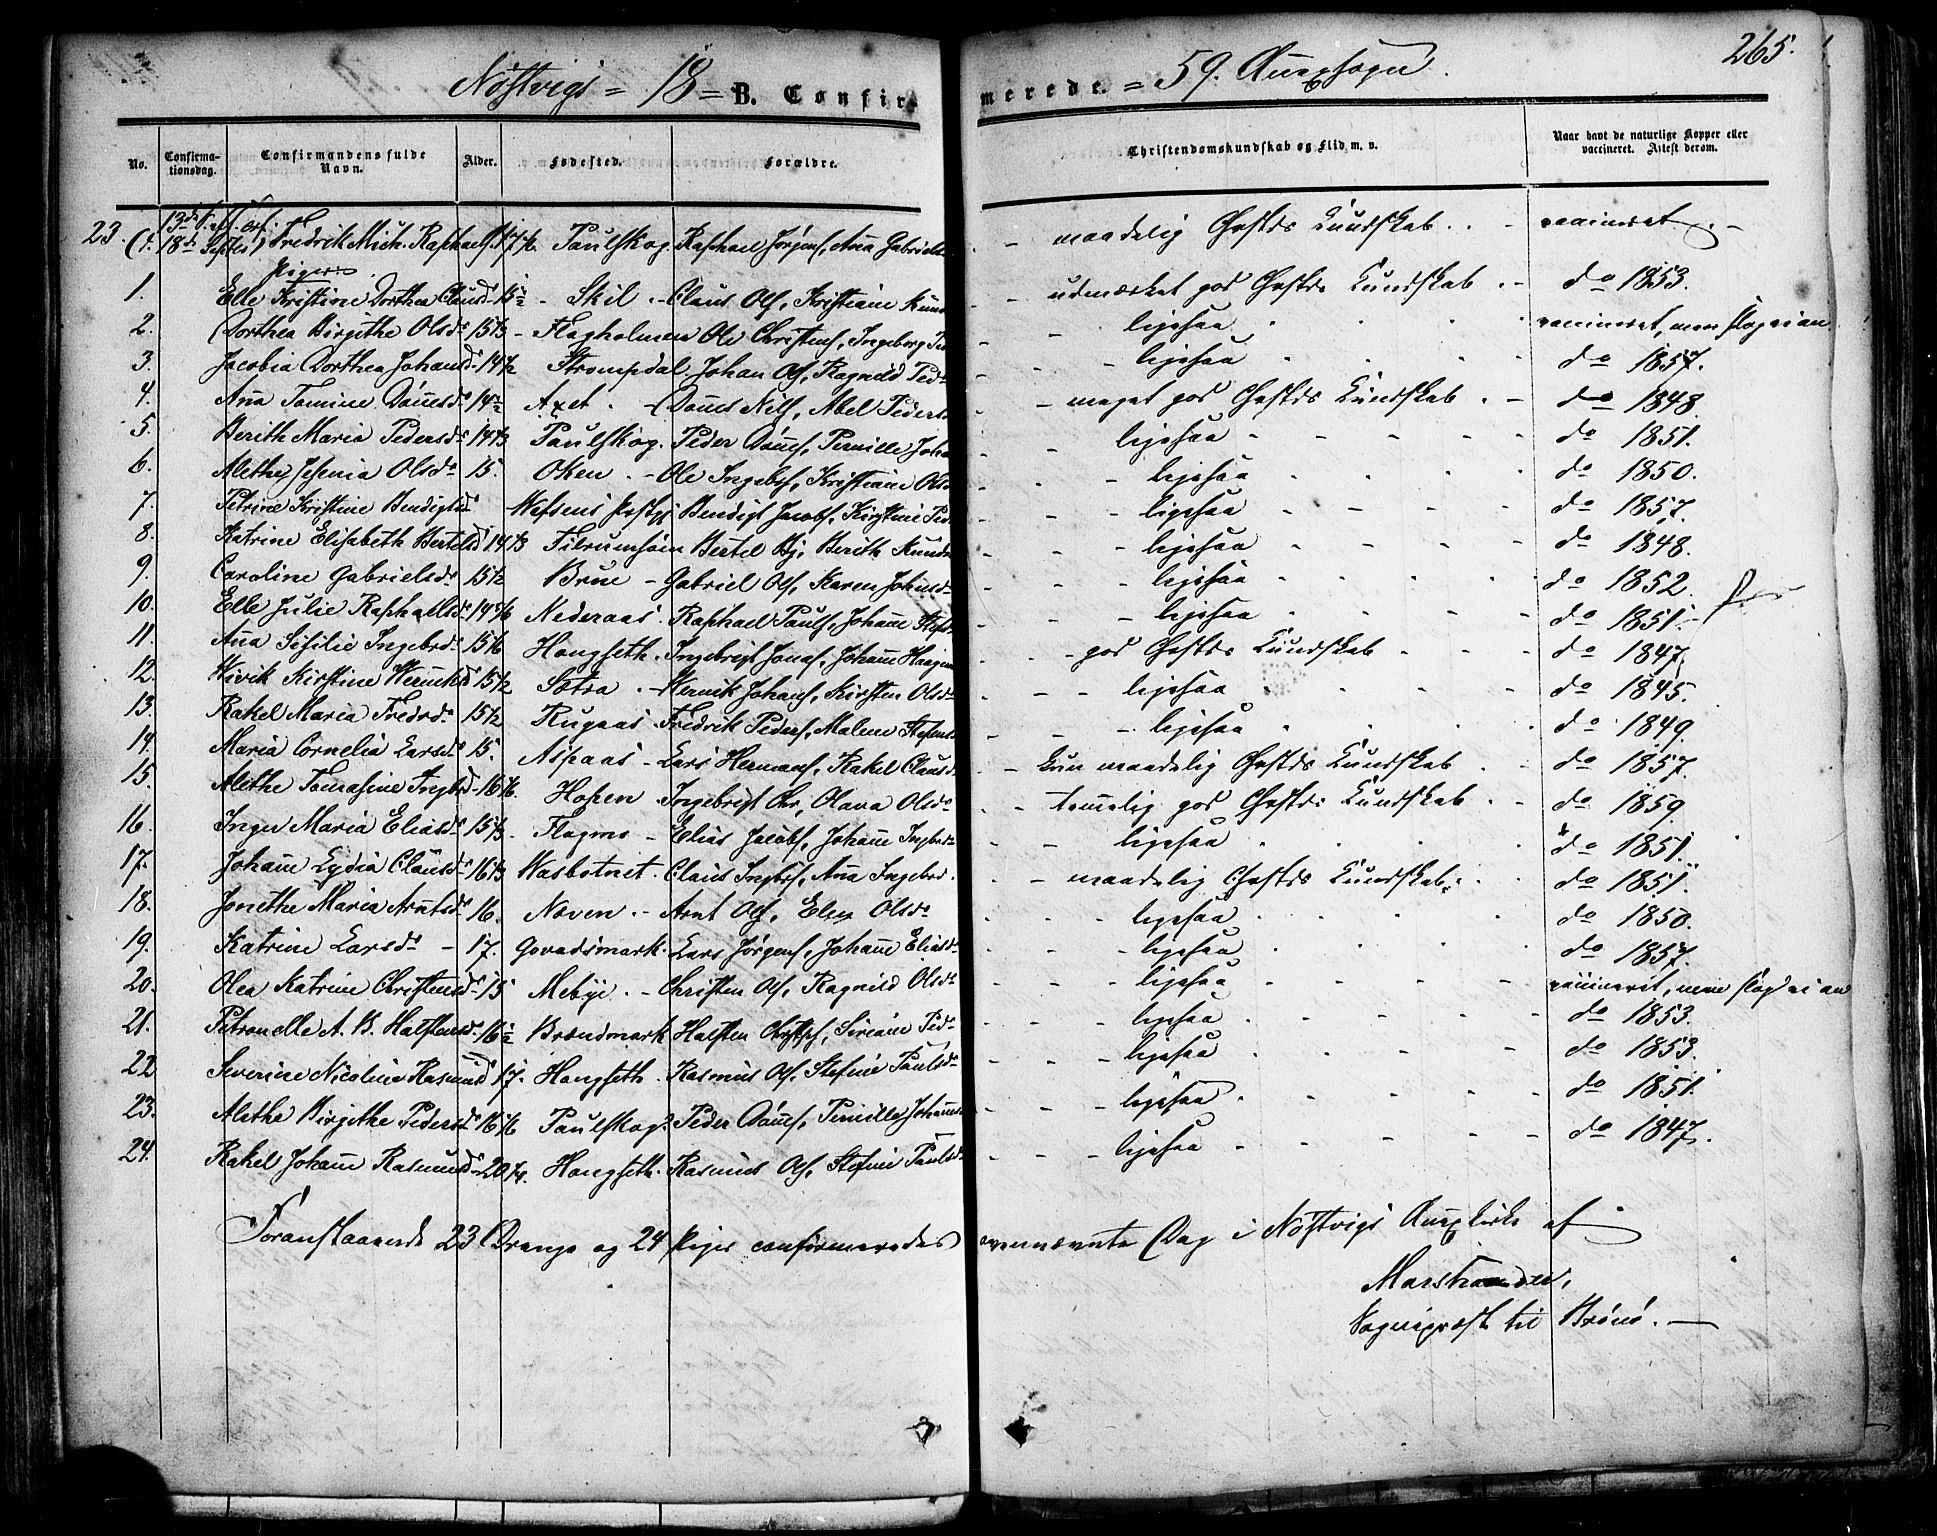 Nøstvigs - 18 - B. Confir-
merede. - 59. Annexsogn. 265.
No. Confirma-tionsdag. Confirmandens fulde Navn. Alder. Fødested. Forældre. Christendomskundskab og Flid m. v. Naar havt de naturlige Kopper eller vaccineret. Attest derom.
23. 13de S. eft. Trif. (: 18de Septbr :) Fredrik Mich. Raphaels. 17 1/6 Paulskog Raphael Jørgens, Aña Gabrielsd. - maadelig Chrstds Kundskab. - vaccineret. -
Piger.
1. Elle Kristine Dorthea Clausd. 15 1/2 - Skil. - Claus Ols, Kristiane Knuds - udmærket god Chrstds Kundskab. - do 1853.
2. Dorthea Birgithe Olsdr 15 1/3 - Flagholmen Ole Christens, Ingeborg Ped - ligesaa vaccineret, men slog ei an
3. Jacobia Dorthea Johansd. 14 1/2 Strompdal. Johan Ols, Ragnild Ped - ligesaa do 1857.
4. Aña Tomine Dønesdr 14 1/2 Axet. - Dønes Nils, Abel Peders - meget god Chrstds Kundskab. - do 1848.
5. Berith Maria Pedersdr 14 1/3 Paulskog. Peder Døns, Pernille Joha - ligesaa - do 1851.
6. Alethe Jesenia Olsdr 15. Oken. - Ole Ingebs, Kristiane Olsd - ligesaa do 1850.
7. Petrine Kristine Bendigtsd Wefsens Prstgj Bendigt Jacobs, Kirstine Ped - ligesaa - do 1857.
8. Katrine Elisabeth Bertelsd 14 1/3 Tilrumsøien Bertel Bj, Berith Knuds - ligesaa - do 1848.
9. Caroline Gabrielsdr 15 1/2 Brue - Gabriel Ols, Karen Johnsd - ligesaa - do 1852.
10. Elle Julie Raphaelsd 14 5/6 Nederaas. Raphael Pauls, Johañe Stefs - ligesaa - do 1851.
11. Aña Sisilie Ingebrdr 15 1/6 Hongseth. Ingebrigt Jonas, Johañe Haagens - god Chrstds Kundskab - do 1847.
12. Wivik Kirstine Werniksd 15 1/2 Sætra. - Wernik Johans, Kirsten Olsd - ligesaa - do 1845.
13. Rakel Maria Fredrdr 15 1/2 Rugaas - Fredrik Peders, Malene Stefensd - ligesaa - do 1849.
14. Maria Cornelia Larsdr 15. Aspaas - Lars Hermans, Rakel Clausd - kun maadelig Chrstds Kundskab - do 1857.
15. Alethe Tomasine Ingbrd 16 1/6. Hopen - Ingebrigt Chr, Olava Olsdr - temelig god Chrstds Kundskab - do 1859.
16. Inger Maria Eliasdr 15 1/3. Flagmo - Elias Jacobs, Johañe Ingbrd - ligesaa do 1851.
17. Johañe Lydia Clausdr 16 1/3 Wasbotnet. Claus Ingbrs, Aña Ingebrd. - maadelig Chrstds Kundskab. - do 1851.
18. Jonethe Maria Arntsdr 16. Noven. - Arnt Ols, Elen Olsdr ligesaa do 1850.
19. Katrine Larsdr - 17. Govadsmark. Lars Jørgens, Johañe Eliasdr - ligesaa do 1857.
20. Olea Katrine Christensd 15 Mebye. - Christen Ols, Ragnild Olsdr - ligesaa vaccineret, men slog ei an
21. Petronelle A. B. Halstensd 16 1/2 Brændmark Halsten Chrstps, Siriane Pedr - ligesaa - do 1853.
22. Severine Nicoline Rasmusd 17. Hongseth. Rasmus Ols, Stefine Paulsdr - ligesaa - do 1853.
23. Alethe Birgithe Pedersd 16 1/6 Paulskog. Peder Døns, Pernille Johañesd - ligesaa - do 1851.
24. Rakel Johañe Rasmusd 20 1/4. Hongseth. Rasmus Ols, Stefine Paulsd - ligesaa - do 1847.
Foranstaaende 23 Drenge og 24 Piger confirmeredes ovennævnte Dag i Nøstvigs Anexkirke af
Marstrander,
Sognepræst til Brønø. -